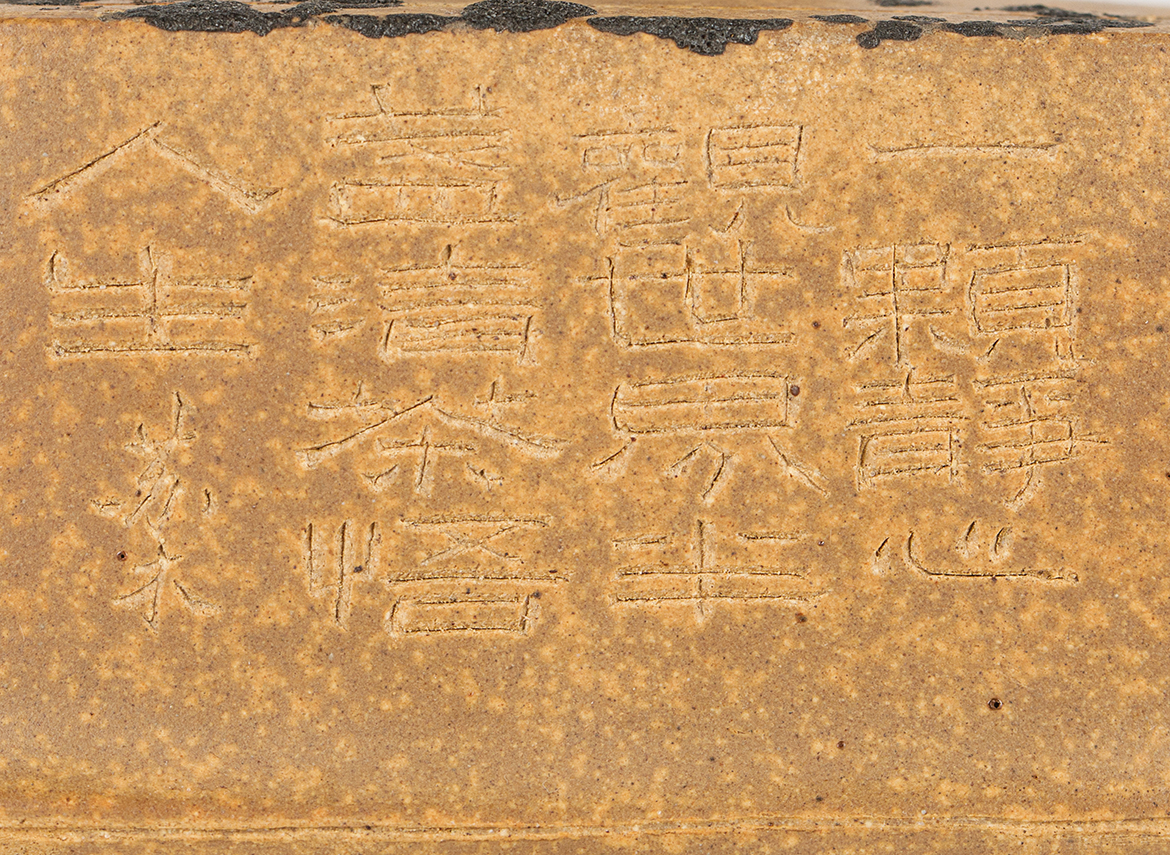 一顆靜心
觀世界半
盞清茶悟
人生